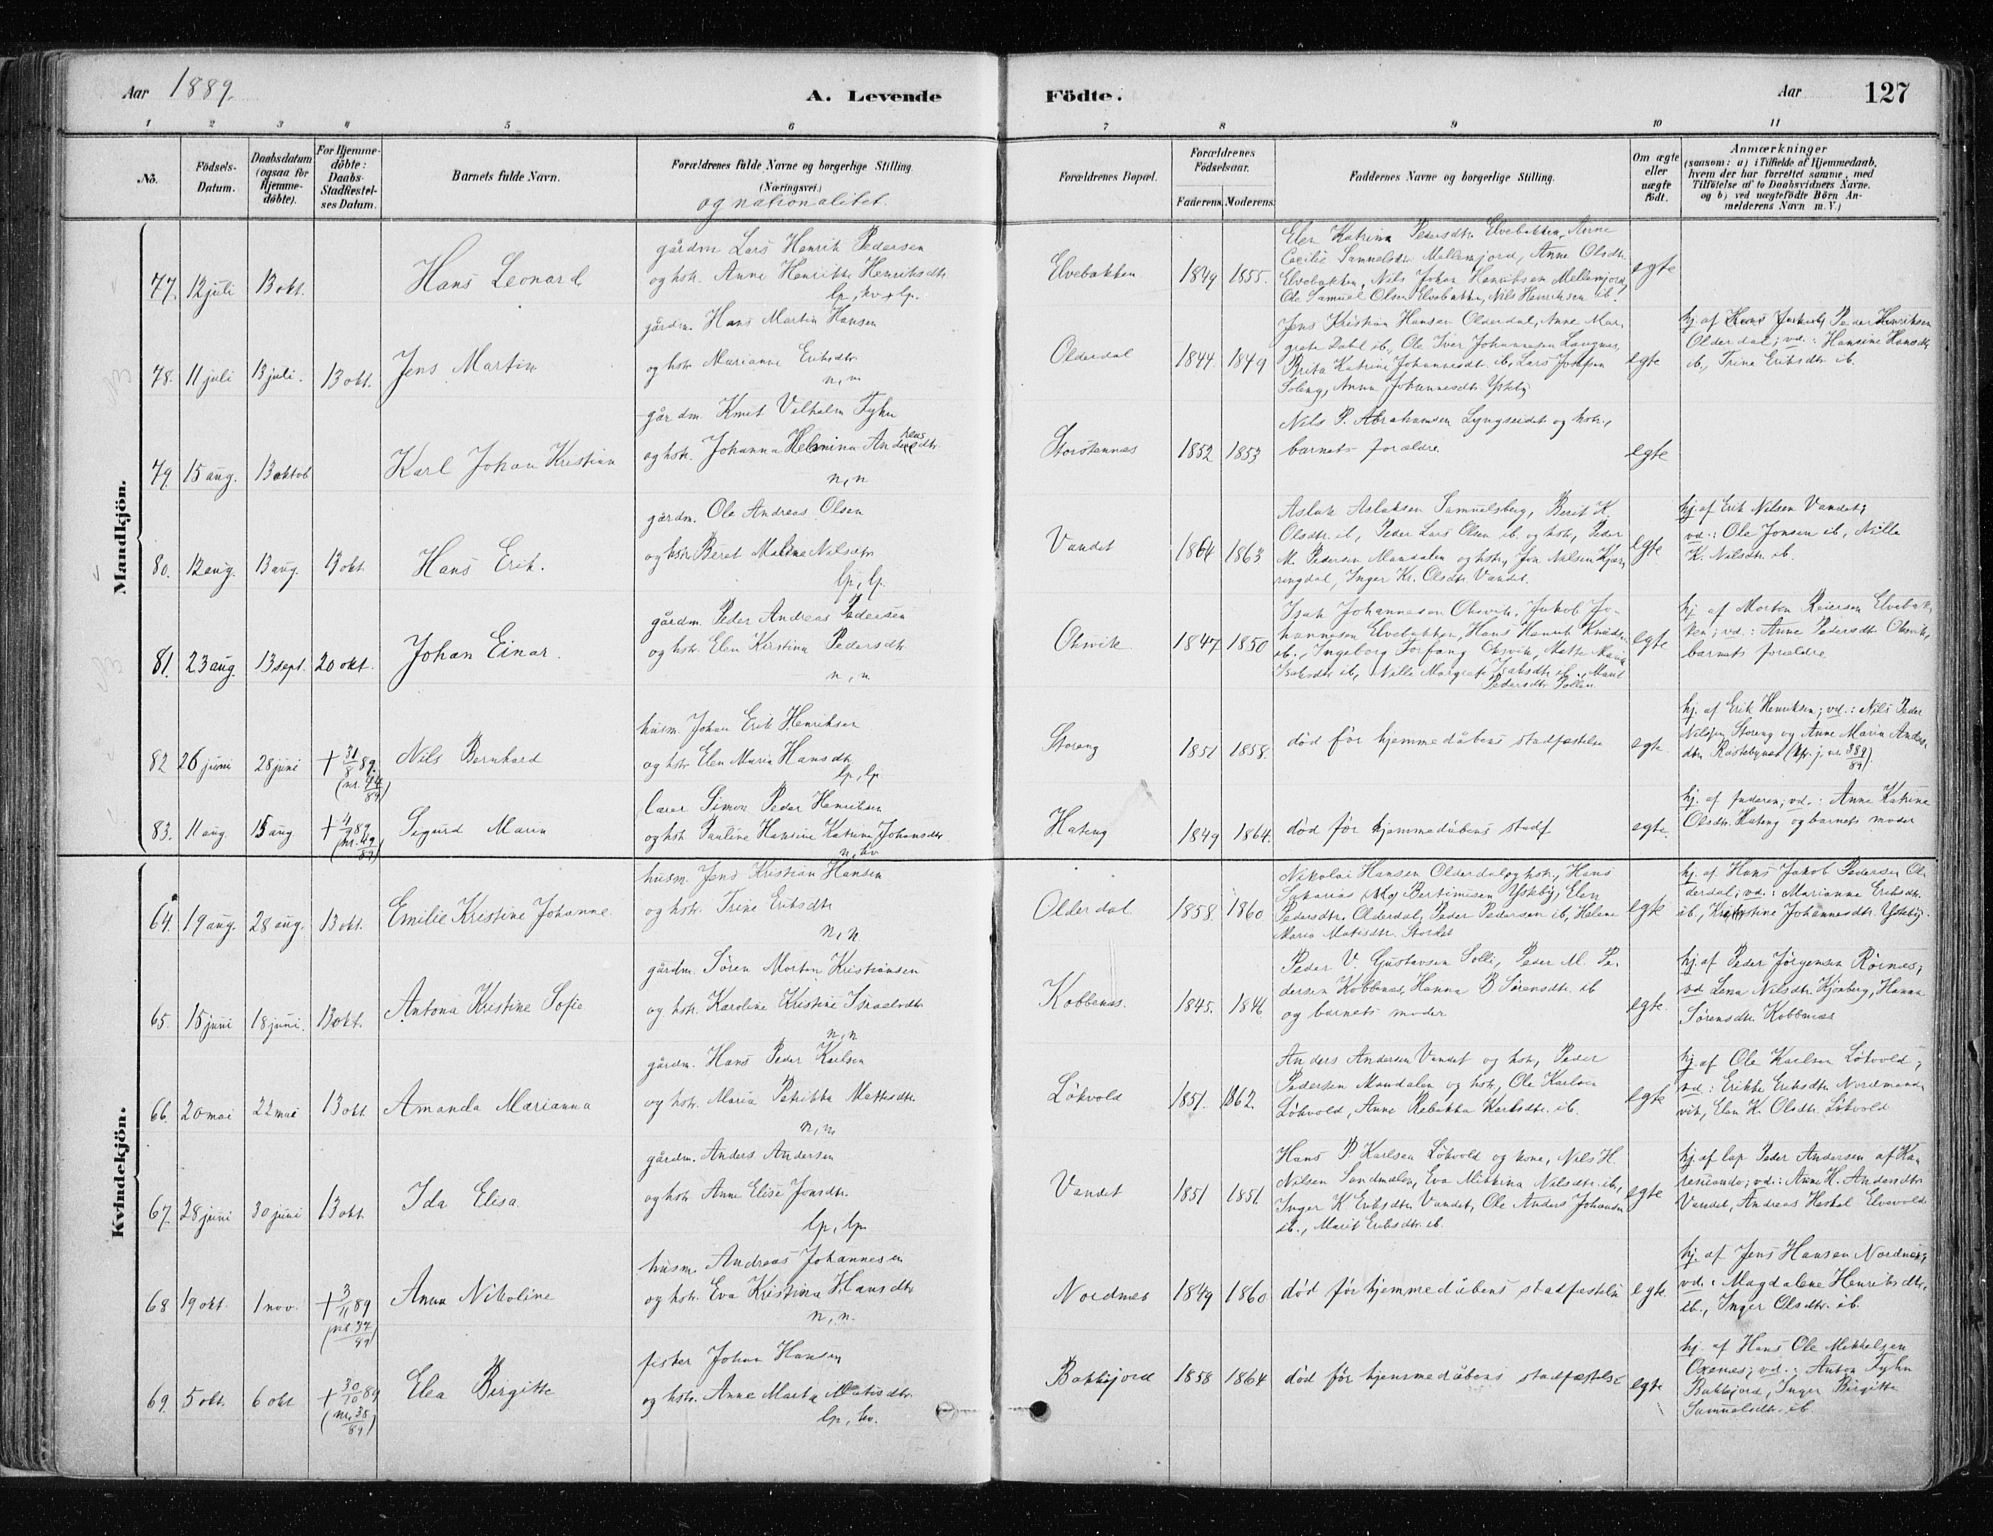 Aar 1889.
A. Levende Födte.
Aar 127
1 2 3 4 5 6 7 8 9 10 11
No.
Födsels-Datum.
Daabsdatum (ogsaa for Hjemme-döbte).
For Hjemme-döbte: Daabs-Stadfæstel-ses Datum.
Barnets fulde Navn.
Forældrenes fulde Navne og borgerlige Stilling.
(Næringsvei.)
og nationalitet.
Forældrenes Bopæl.
Forældrenes Födselsaar.
Faderens. Moderens.
Faddernes Navne og borgerlige Stilling.
Om ægte eller uægte födt.
Anmærkninger
(saasom: a) i Tilfælde af Hjemmedaab,
hvem der har forrettet samme, med
Tilföielse af to Daabsvidners Navne.
og b) ved uægtefödte Börn An-
melderens Navn m. V.)
Mandkjön.
77. 12 juli 13 okt. Hans Leonard
gårdm Lars Henrik Pedersen
og hst. Anne Henrikke Henriksdtr
lp, kv, lp.
Elvebakken 1849 1855.
Elen Katrina Pedersdtr. Elvebakken, Anne
Cecilie Samuelsdtr. Mellemjord, Anne Olsdtr.
Elvebakken, Nils Johan Henriksen Mellemjord,
Ole Samuel Olsen Elvebakken, Nils Henriksen ib.
egte
78. 11 juli 13 juli. 13 okt. Jens Martin
gårdm. Hans Martin Hansen
og hst. Marianne Eriksdtr.
n, n
Olderdal 1844 1849
Jens Kristian Hansen Olderdal, Anne Mar-
grete Dahl ib, Ole Iver Johannesen Langnes,
Brita Katrine Johannesdtr. ib, Lars Josefsen
Soleng, Anna Johannesdtr. Ytteby
egte
hj. af Hans Jakob Peder Henriksen
Olderdal; vd.: Hansine Hansdtr
ib., Trine Eriksdtr ib.
79 15 aug. 13 oktob Karl Johan Kristian
gårdm. Knut Vilhelm Fyhn
og hst. Johanna Helmina
n, n
Storstennæs 1852 1853
Nils P. Abrahamsen Lyngseidet og hstr.,
barnets forældre.
egte
80. 12 aug. 13 aug. 13 okt. Hans Erik.
gårdm. Ole Andreas Olsen
og hst. Beret Maline Nilsdtr
lp, lp.
Vandet 1864 1863
Aslak Aslaksen Samuelsberg, Berit K.
Olsdtr. ib, Peder Lars Olsen ib og hstr, Peder
M. Pedersen Mandalen og hstr, Jon Nilsen Kjær-
ringdal, Inger Kr. Olsdtr. Vandet.
egte
hj. af Erik Nilsen Vandet;
vd.: Ole Jonsen ib, Nilla
K. Nilsdtr. ib.
81. 23 aug. 13 sept. 20 okt. Johan Einar.
gårdm. Peder Andreas Pedersen
og hst. Elen Kirstina Pedersdtr
n, n
Oksvik 1847 1850
Isak Johannesen Oksvik, Jakob Jo-
hannesen Elvebakken, Hans Henrik Knudsen
ib., Ingeborg Torfang Oksvik, Mette Maria
Isaksdtr ib, Nille Margrete Isaksdtr ib., Marit
Pedersdtr Sollia
egte
hj. af Morten Reiersen Elvebak-
ken; vd.: Anne Pedersdtr Oksvik,
barnets forældre
82 26 juni 28 juni + 31/8 89. (nr. 44/89) Nils Bernhard
husm. Johan Erik Henriksen
og hstr Elen Maria Hansdtr.
lp, lp
Storeng 1851 1858.
død før hjemmedåbens stadfæstelse
egte.
hj. af Erik Henriksen; vd.: Nils Peder
Nilsen Storeng og Anne Maria Anders-
dtr. (kpr. j. nr 388/89).
83. 11 aug. 15 aug + 4/9 89 (nr. 49/89) Sigurd Marin
lærer Simon Peder Henriksen
og hst Pauline Hansine Katrine Johansdtr
n, kv
Hateng 1849 1864.
død før hjemmedåbens stadf
egte.
hj. af faderen; vd.: Anne Katrine
Olsdtr. Hateng og barnets moder
Kvindekjön.
64. 19 aug. 28 aug. 13 okt. Emilie Kristine Johanne
husm. Jens Kristian Hansen
og hstr. Trine Eriksdtr
n, n.
Olderdal 1858. 1860
Nikolai Hansen Olderdal og hstr, Hans
Sakarias Bertinisen Ytteby, Elen
Pedersdtr. Olderdal, Peder Pedersen ib, Helene
Maria Matisdtr. Stordal
egte
hj. af Hans Jakob Pedersen Ol-
derdal; vd.: Marianne Eriksdtr
ib., Kristine Johannesdtr. Ytteby.
65. 15 juni 18 juni. 13 okt. Antona Kristine Sofie
gårdm. Søren Morten Kristiansen
og hst. Karoline Kristine Israelsdtr
n, n
Kobbenæs. 1845. 1846
Peder V. Gustavsen Solli, Peder M. Pe-
dersen Kobbenæs, Hanna B Sørensdtr. ib
og barnets moder
egte.
hj. af Peder Jørgensen Rørnes;
vd Lena Nilsdtr. Kjønberg, Hanna
Sørensdtr. Kobbenæs
66. 20 mai 22 mai 13 okt. Amanda Marianna
gårdm. Hans Peder Karlsen
og hstr. Maria Petrikka Mattisdtr.
n, n.
Løkvold 1851. 1862.
Anders Andersen Vandet og hstr, Peder
Pedersen Mandalen og hstr, Ole Karlsen
Løkvold, Anne Rebekka Karlsdtr. ib.
egte
hj. af Ole Karlsen Løkvold;
vd.: Erikke Eriksdtr. Nordmands-
vik, Elen K. Olsdtr. Løkvold
67. 28 juni 30 juni 13 okt. Ida Elisa
gårdm. Anders Andersen
og hstr. Anne Elise Jonsdtr.
lp, lp.
Vandet 1851 1851
Hans P Karlsen Løkvold og kone, Nils H.
Nilsen Sandmelen, Eva Mikkina Nilsdtr. ib,
Inger K Eriksdtr. Vandet, Ole Anders Johansen
ib., Marit Eriksdtr. ib.
egte
hj. af lap. Peder Andersen af Ka-
resuando; vd.: Anne H. Andersdtr
Vandet, Andreas Heskel Elvevold
68 19 okt. 1 nov. + 3/11 89 (nr. 37/89) Anna Nikoline
husm. Andreas Johannesen
og hstr. Eva Kristina Hansdtr
n, n.
Nordnes 1849 1860
død før hjemmedåbens stadfæstelse
egte.
hj. af Jens Hansen Nordnes;
vd.: Magdalene Henriksdtr.
ib., Inger Olsdtr. ib.
69. 5 okt. 6 okt + 30/10 89 (nr. 38/89) Elea Birgitte
fisker Johan Hansen
og hstr. Anne Marta Matisdtr.
lp, kv.
Bakkejord 1858 1864
død før hjemmedåbens stadfæstelse
egte
hj. af Hans Ole Mikkelsen
Oxenes; vd.: Anton Fyhn
Bakkejord, Inger Birgitte
Samuelsdtr. ib.